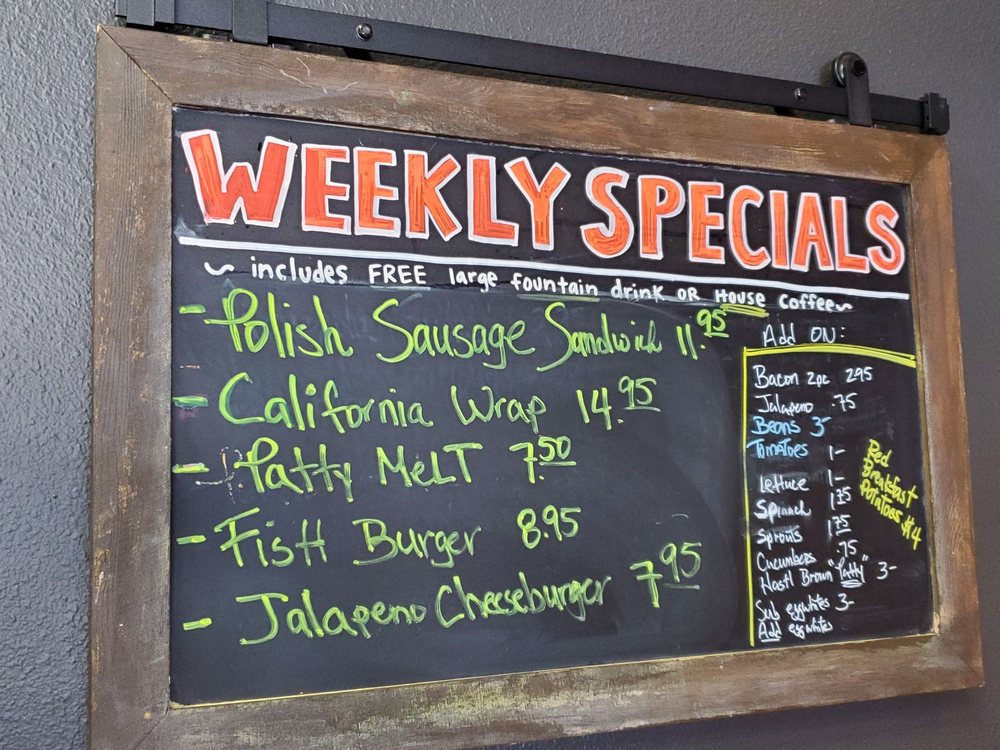 WEEKLY SPECIALS
~ includes FREE large fountain drink OR House Coffee~
- Polish Sausage Sandwich 11.95
- California Wrap 14.95
- Patty MeLT 7.50
- Fish Burger 8.95
- Jalapeno Cheeseburger 7.95
Add ON:
Bacon 2pc 2.95
Jalapeno .75
Beans 3-
Tomatoes 1-
Lettuce 1-
Spinach 1.75
Sprouts 1.75
Cucumbers .75
Hash Brown "Patty" 3-
Sub eggwhites 3-
Add eggwhites
Red
Breakfast
Potatoes $4